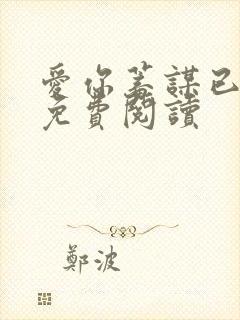 愛你蓄謀已
免費閱讀
鄭波